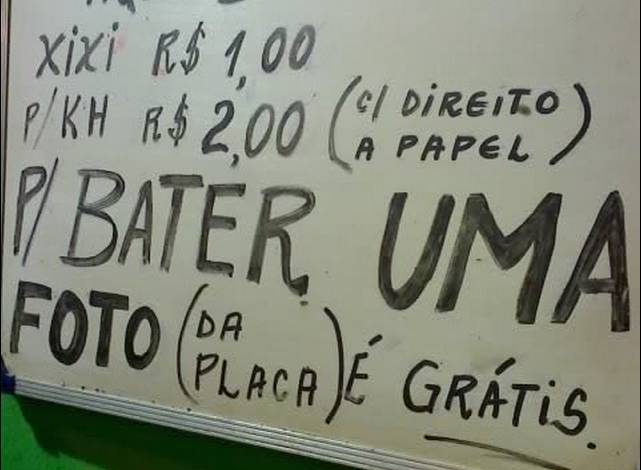 XiXi R$ 1,00
P/KH R$ 2,00 (c/ DiREITO
A PAPEL)
P/ BATER UMA
FOTO (DA
PLACA) É GRÁTiS.